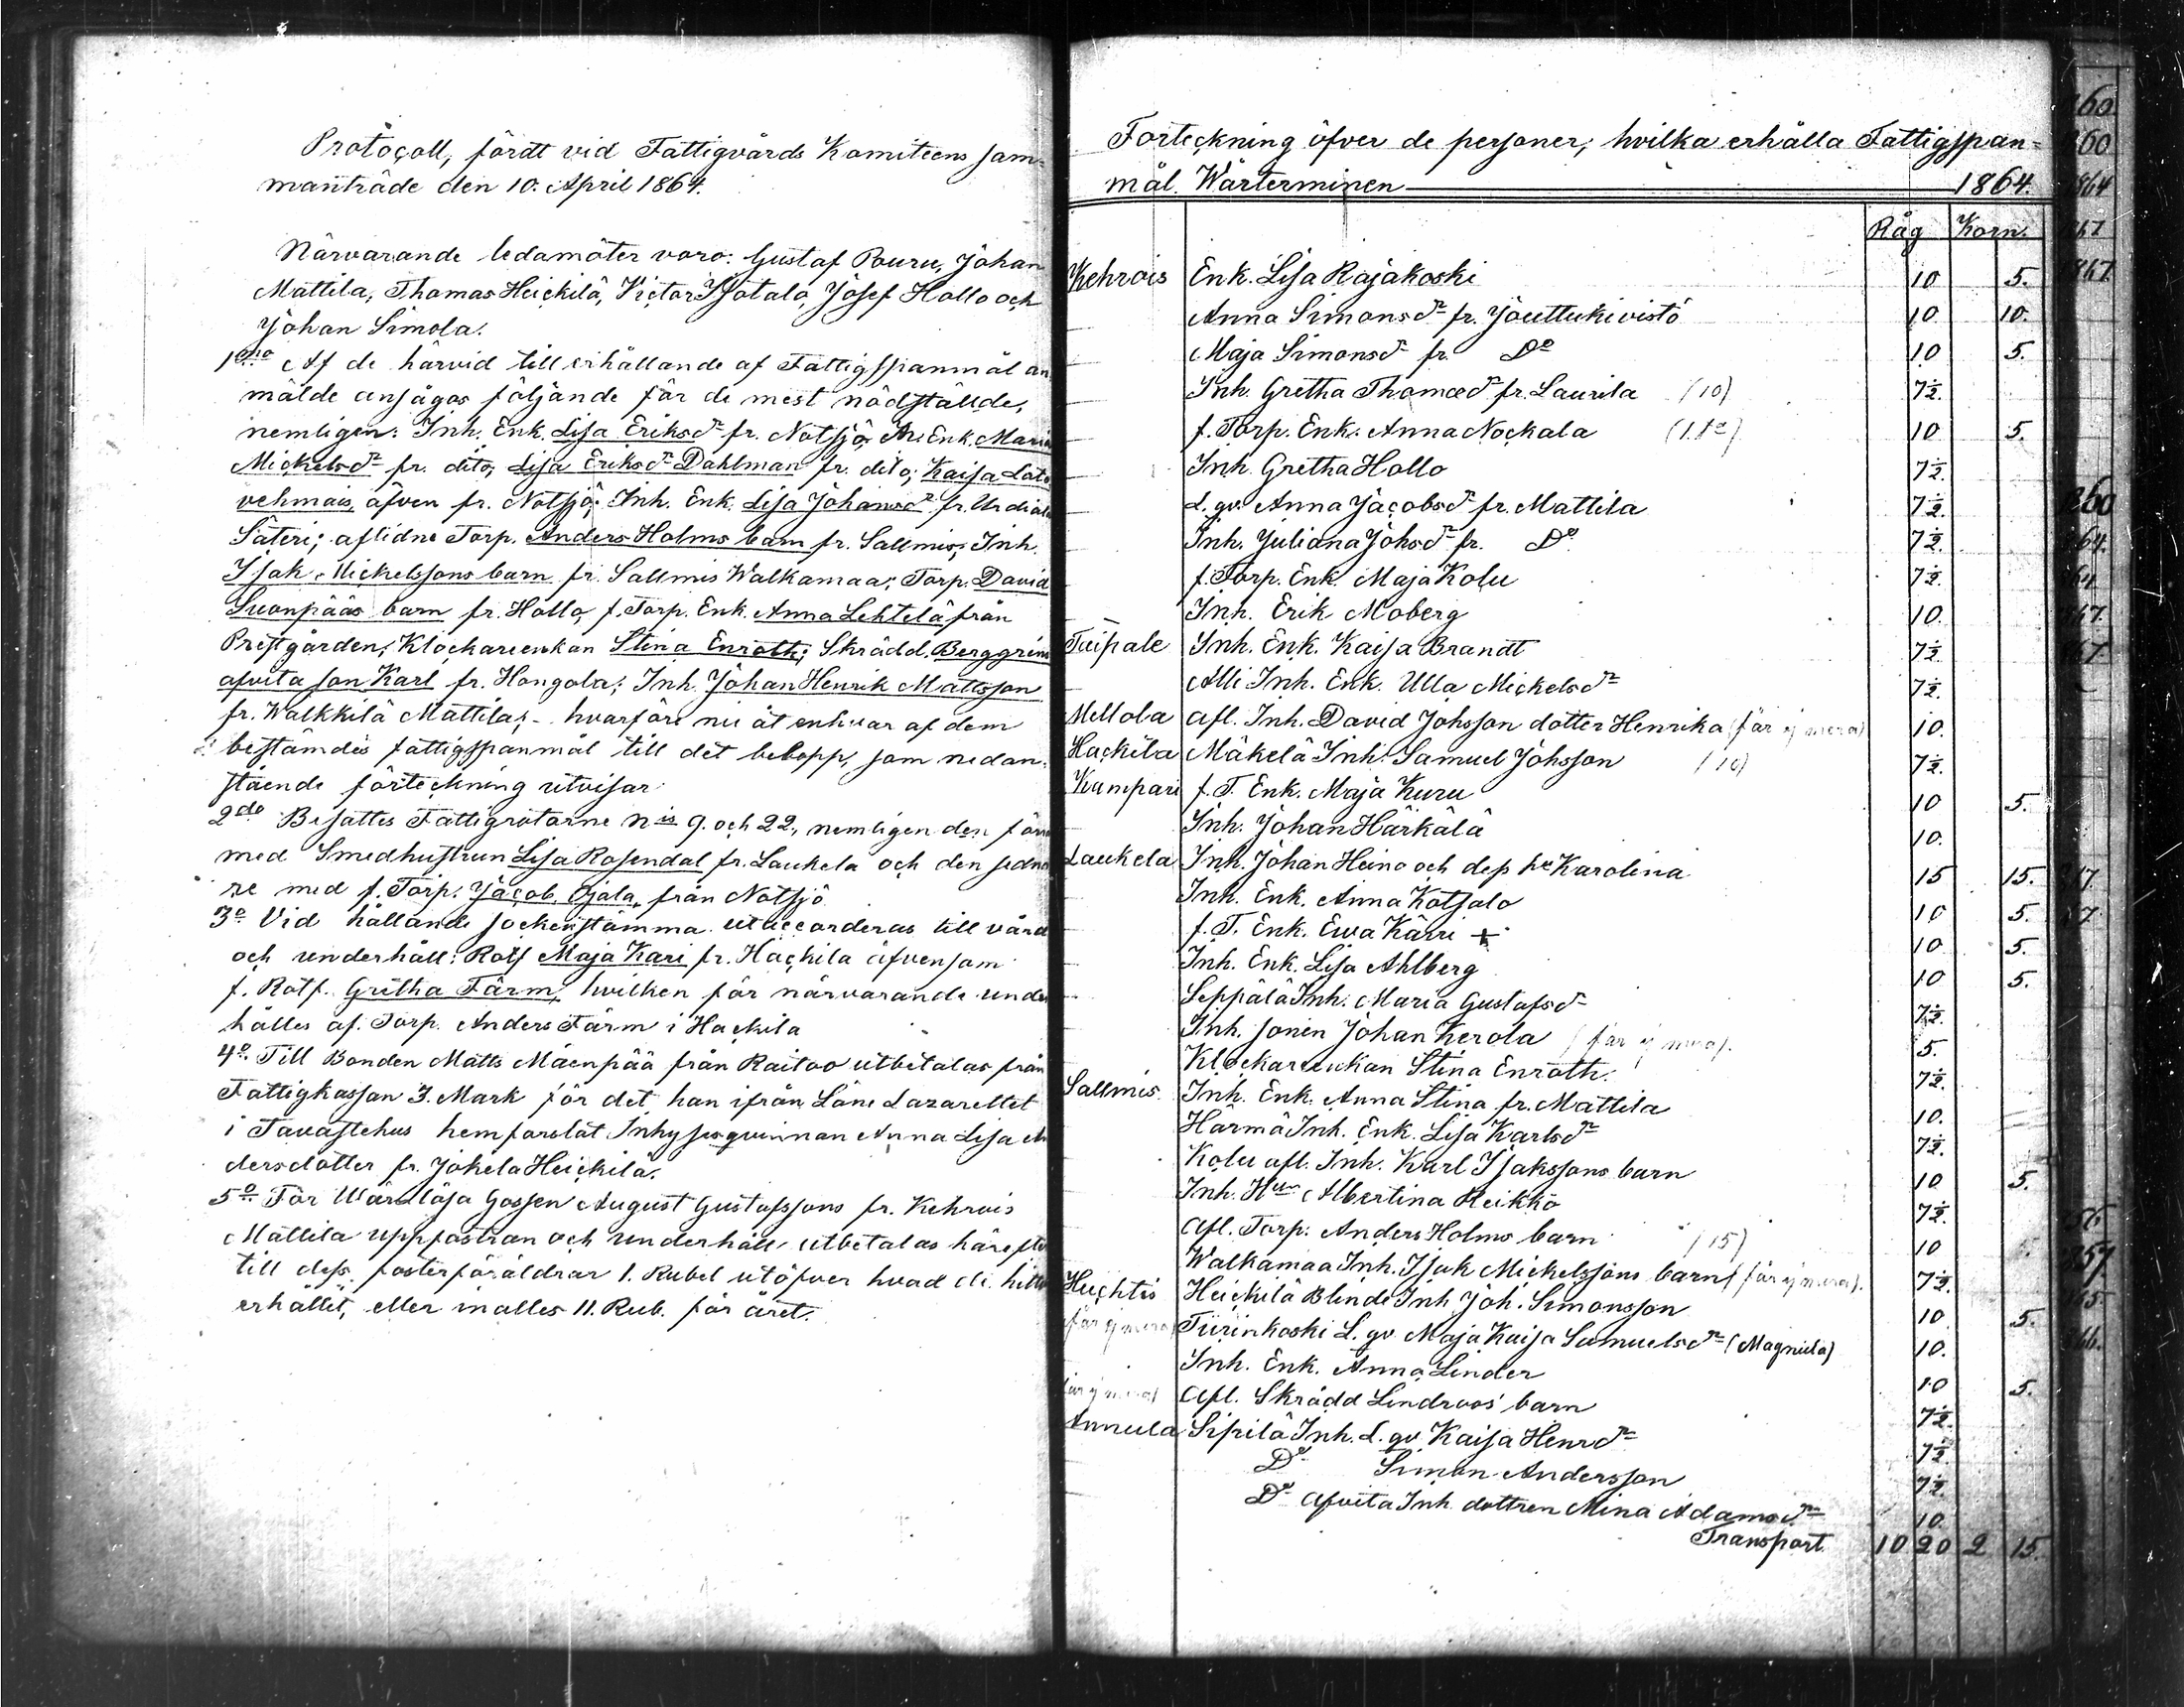 Protocoll, fördt vid Fattigvårds Komiteens sam-
manträde den 10. April 1864.
Närvarande ledamöter voro: Gustaf Pouru, Johan
Mattila, Thomas Heickilä, Victor Isotalo, Josef Hollo och
Johan Simola.
1mo Af de härvid till erhållande af Fattigspanmål an
mälde ansågos följande för de mest nödstälde,
nemligen: Inh. Enk. Lisa Eriksdr fr. Notsjö Enk. Maria
Mickelsdr fr. dito, Lisa Eriksdr Dahlman fr. dito; Kaisa Lato
vehmais, äfven fr. Notsjö; Inh. Enk. Lisa Johansdr fr. Urdiala
Säteri; aflidne Torp. Anders Holms barn fr. Sallmis; Inh.
Isak Mickelssons barn fr. Sallmis Walkamaa; Torp. David
Suonpääs barn fr. Hollo, f. Torp. Enk. Anna Lehtelä från
Prestgården; Klockareenkan Stina Enroth; Skrädd. Berggrens
afvita son Karl fr. Hongola; Inh. Johan Henrik Mattsson
fr. Walkkilä Mattila; - hvarföre nu åt enhvar af dem
bestämdes fattigspanmål till det belopp, som nedan-
stående förteckning utvisar.
2do Besattes Fattigrotarne Nis 9. och 22, nemligen den förra
med Smedhustrun Lisa Rosendal fr. Laukela och den sedna
re med f. Torp. Jacob Ojala, från Notsjö
3o Vid hållande sockenstämma utaccorderas till vård
och underhåll: Rotf Maja Kari fr. Hackila äfvensom
f. Rotf. Gretha Färm, hvilken för närvarande under
hålles af Torp. Anders Färm i Hackila
4o Till Bonden Matts Mäenpää från Raitoo utbetalas från
Fattigkassan 3. Mark för det han ifrån Läne Lazarettet
i Tavastehus hemforslat Inhysesqvinnan Anna Lisa An
dersdotter fr. Jokela Heickilä.
5o För Wärnlösa Gossen August Gustafssons fr. Kehrois
Mattila uppfostran och underhåll utbetalas härefter
till dess fosterföräldrar 1. Rubel utöfver hvad de hittills
erhållit, eller inalles 11. Rub. för året.
Förteckning öfver de personer, hvilka erhålla Fattigspan-
mål. Wårterminen 1864.
Råg Korn.
Kehrois Enk. Lisa Rajakoski 10 5.
Anna Simonsdr fr. Jouttukivistö 10. 10.
Maja Simonsdr fr. Do 10 5.
Inh. Gretha Thomædr fr. Laurila (10) 7½.
f. Torp. Enk. Anna Nockala 10 5.
Inh. Gretha Hollo 7½.
L. qv. Anna Jacobsdr fr. Mattila 7½.
Inh. Juliana Johsdr fr. Do 7½.
f. Torp. Enk. Maja Kolu 7½.
Inh. Erik Moberg 10.
Tuipale Inh. Enk. Kaisa Brandt 7½.
Alli Inh. Enk. Ulla Mickelsdr 7½.
Mellola Afl. Inh. David Johsson dotter Henrika (får ej mera) 10.
Hackila Mäkelä Inh. Samuel Johsson (10) 7½.
Kumpari f. T. Enk. Maja Kuru 10 5.
Inh. Johan Härkälä 10.
Laukela Inh. Johan Heino och dess hu Karolina 15 15.
Inh. Enk. Anna Kotsalo 10 5.
f. T. Enk. Ewa Kärri + 10 5.
Inh. Enk. Lisa Ahlberg 10 5.
Seppälä Inh. Maria Gustafsdr 7½.
Inh. sonen Johan Kerola (får ej mera). 5.
Klockareenkan Stina Enroth. 7½.
Sallmis. Inh. Enk. Anna Stina fr. Mattila 10.
Härmä Inh. Enk. Lisa Karlsdr 7½.
Kolu afl. Inh. Karl Isakssons barn 10 5.
Inh. Hun Albertina Reikkö 7½.
Afl. Torp. Anders Holms barn (15) 10
Walkamaa Inh. Isak Mickelssons barn (får ej mera). 7½.
Huchtis Heickilä Blinde Inh Joh. Simonsson 10 5.
får ej mera Tiirinkoski L. qv. Maja Kaisa Samuelsdr (Magnula) 10.
Inh. Enk. Anna Linder 10 5.
får ej mera) Afl. Skrädd Lindroos' barn 7½.
Annula Sipilä Inh. L. qv. Kaisa Henrdr 7½.
Do Simon Andersson 7½.
Do afvita Inh. dottren Mina Adamsdr 10.
Transport 10 20 2 15.